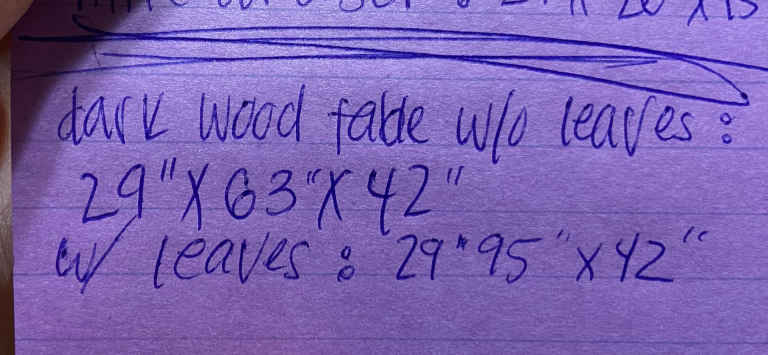 dark wood table w/o leaves :
29" X 63" X 42"
w/ leaves : 29" 95" x 42"